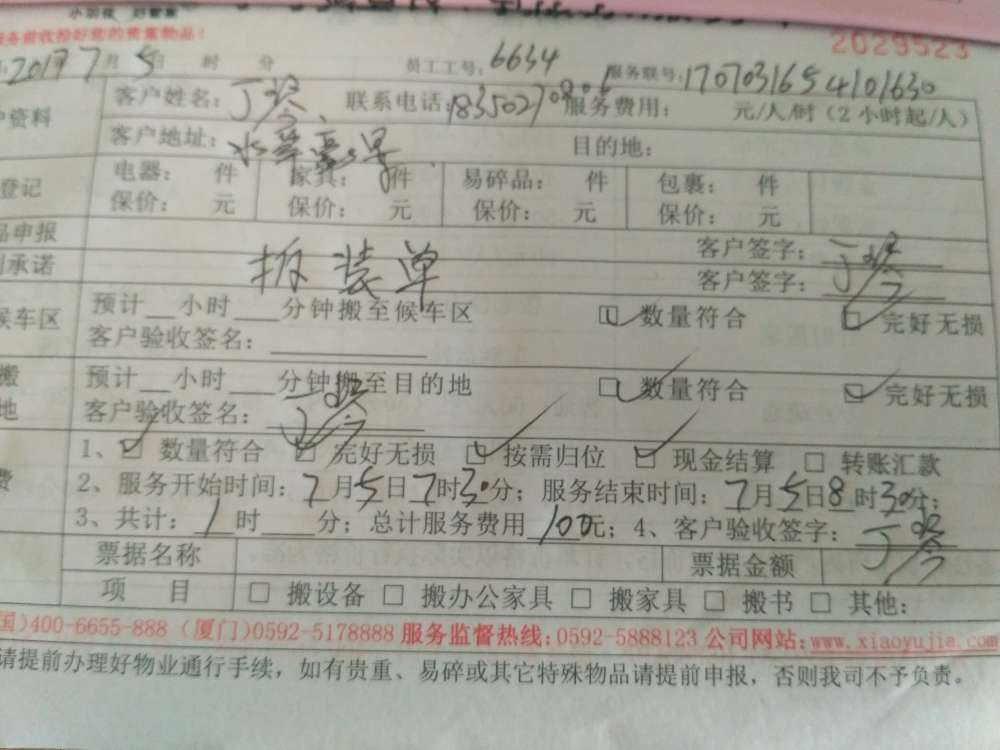 服务前收拾好您的贵重物品！
2029523
2017 7月 5日 时 分 员工工号：6634 服务联号：1707031654101630
客户资料 客户姓名：丁 联系电话： 服务费用： 元/人/时（2小时起/人）
客户地址： 目的地：
登记 电器： 件 家具： 件 易碎品： 件 包裹： 件
保价： 元 保价： 元 保价： 元 保价： 元
品申报 客户签字：丁
承诺 拆装单 客户签字：丁
候车区 预计__小时___分钟搬至候车区 数量符合 完好无损
客户验收签名：
搬 预计__小时___分钟搬至目的地 数量符合 完好无损
地 客户验收签名：丁
1、 数量符合 完好无损 按需归位 现金结算 □ 转账汇款
费 2、服务开始时间：7月5日7时30分；服务结束时间：7月5日8时30分；
3、共计：1时 分；总计服务费用100元；4、客户验收签字：丁
票据名称 票据金额
项 目 □ 搬设备 □ 搬办公家具 □ 搬家具 □ 搬书 □ 其他：
国)400-6655-888 (厦门)0592-5178888 服务监督热线：0592-5888123 公司网站：www.xiaoyujia.com
请提前办理好物业通行手续，如有贵重、易碎或其它特殊物品请提前申报，否则我司不予负责。